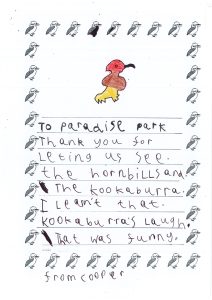 To paradise park
Thank you for
leting us see.
the hornbills and
The kookaburra.
I learnt that.
kookaburra's laugh.
That was funny.
from cooper